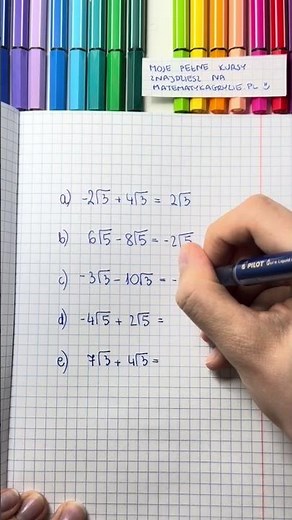 MOJE PEŁNE KURSY
ZNAJDZIESZ NA
MATEMATYKAGRYLIE.PL
a) -2√3 + 4√3 = 2√3
b) 6√5 - 8√5 = -2√5
c) -3√3 - 10√3 = -
d) -4√5 + 2√5 =
e) 7√3 + 4√3 =
PILOT